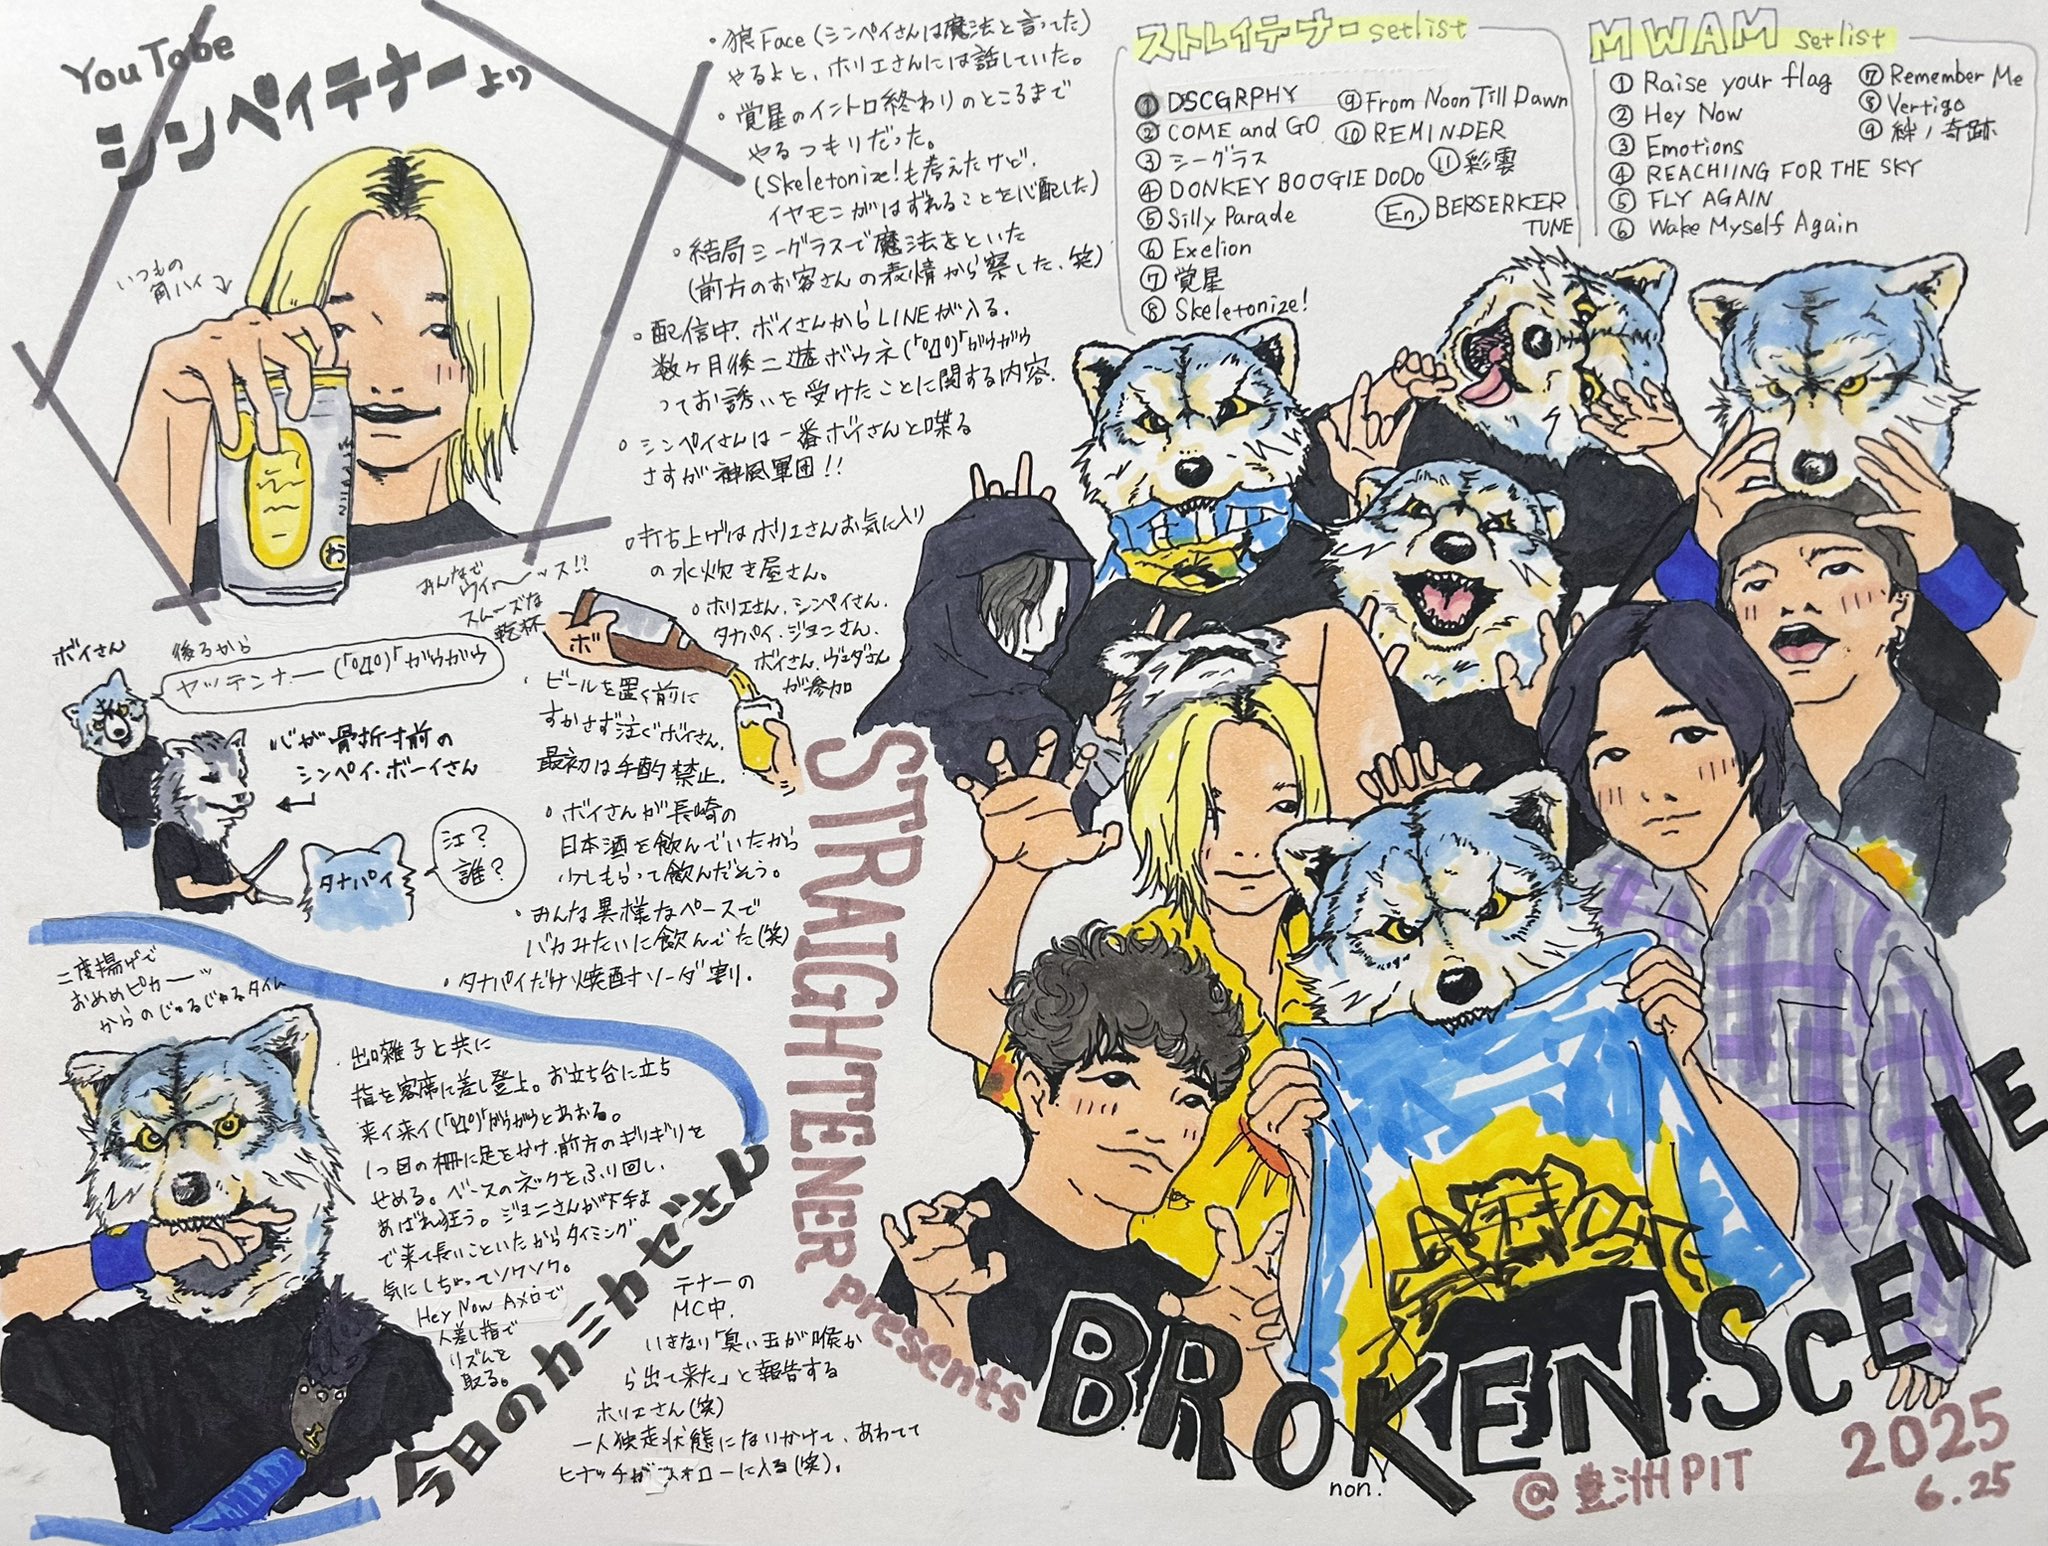 YouTobe
シンペイテナーより
いつもの
角ハイ
・狼Face(シンペイさんは魔法と言ってた)
やるよと、ホリエさんには話していた。
・覚星のイントロ終わりのところまで
やるつもりだった。
(Skeletonize!も考えたけど、
イヤモニがはずれることを心配した)
・結局シーグラスで魔法をといた
(前方のお客さんの表情から察した、笑)
・配信中、ボイさんからLINEが入る。
数ヶ月後ニ遊ボウネ(「ºДº)「ガウガウ
ってお誘いを受けたことに関する内容。
・シンペイさんは一番ボイさんと喋る
さすが神風軍団!!
・打ち上げはホリエさんお気に入り
の水炊き屋さん。
・ホリエさん、シンペイさん、
タナパイ、ジョニさん、
ボイさん、ヴェダさん
が参加
みんなで
ウイ〜ッス!!
スムーズな
乾杯
ボ
・ビールを置く前に
すかさず注ぐボイさん。
最初は手酌禁止。
・ボイさんが長崎の
日本酒を飲んでいたから
少しもらって飲んだそう。
・みんな異様なペースで
バカみたいに飲んでた(笑)
・タナパイだけ焼酎ソーダ割り。
ボイさん
後ろから
ヤッテンナー(「ºДº)「ガウガウ
心が骨折寸前の
シンペイ・ボーイさん
タナパイ
江?
誰?
二度揚げで
おめめピカーッ
からのじゅるじゅるタイム
出囃子と共に
指を客席に差し登上。お立ち台に立ち
来イ来イ(「ºДº)「ガウガウとあおる。
1つ目の柵に足をかけ、前方のギリギリを
せめる。ベースのネックをふり回し、
あばれ狂う。ジョニさんが下手よ
で来て長いこといたからタイミング
気にしちゃってソワソワ。
Hey Now Aメロで
人差し指で
リズムを
取る。
今日のカミカゼさん
テナーの
MC中、
いきなり「臭い玉が喉か
ら出て来た」と報告する
ホリエさん(笑)
一人独走状態になりかけて、あわてて
ヒナッチがフォローに入る(笑)。
ストレイテナー setlist
① DSCGRPHY
② COME and GO
③ シーグラス
④ DONKEY BOOGIE DODO
⑤ Silly Parade
⑥ Exelion
⑦ 覚星
⑧ Skeletonize!
⑨ From Noon Till Dawn
⑩ REMINDER
⑪ 彩雲
En. BERSERKER
TUNE
MWAM setlist
① Raise your flag
② Hey Now
③ Emotions
④ REACHIING FOR THE SKY
⑤ FLY AGAIN
⑥ Wake Myself Again
⑦ Remember Me
⑧ Vertigo
⑨ 絆ノ奇跡
STRAIGHTENER presents
BROKENSCENE
non.
@豊洲PIT
2025
6.25